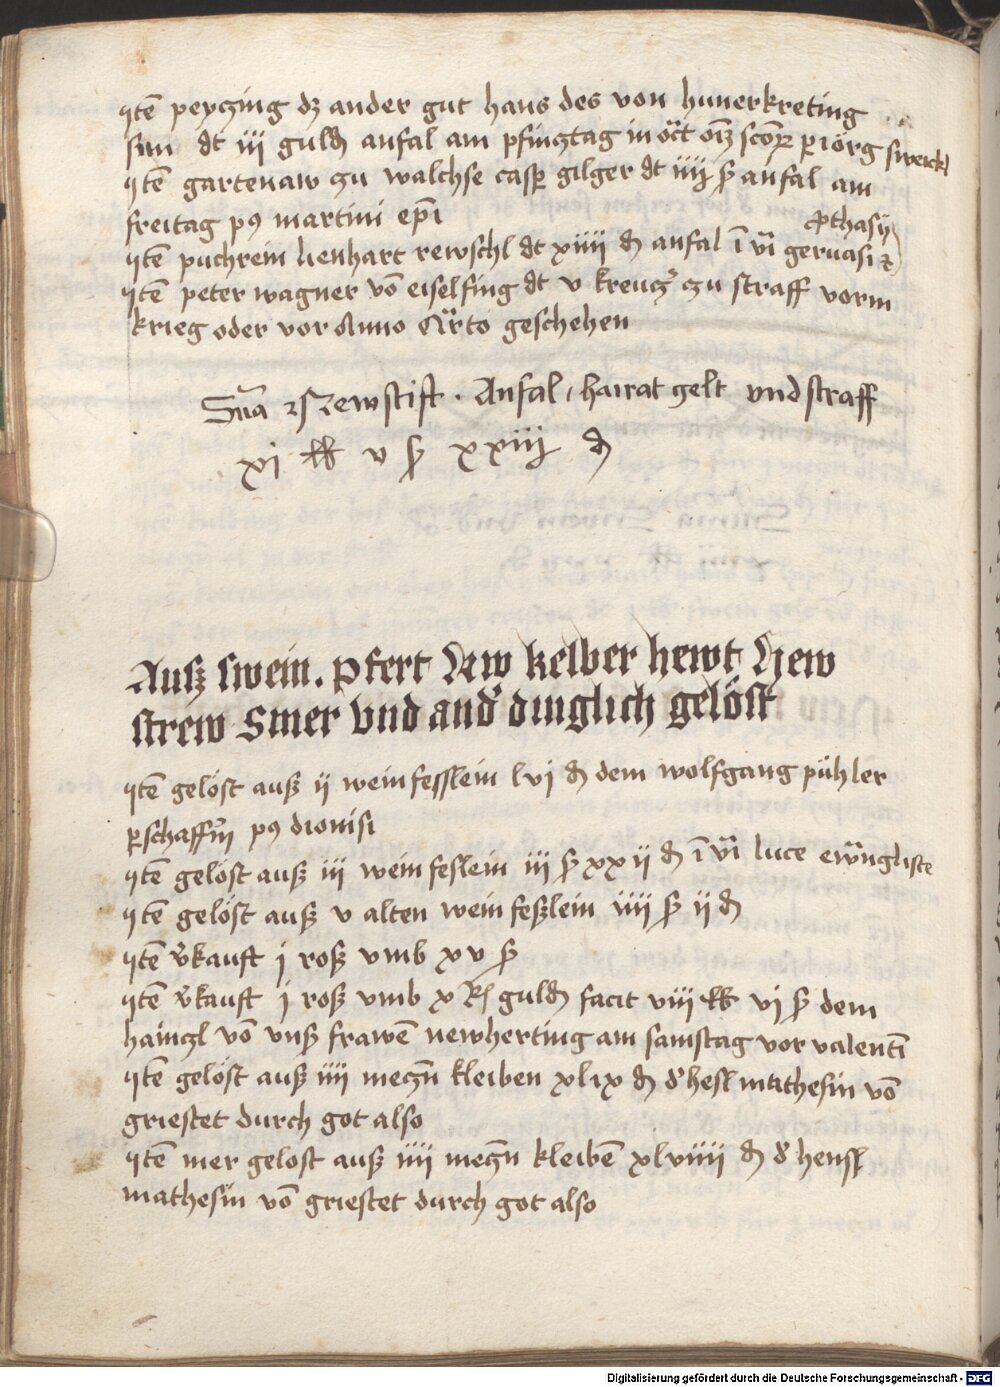 Itē peyczing dz ander gut hans des von hunerkreting
sun dt iii guldn anfal am pfincztag in oct oīm scōr p iorg sweickl
Itē gartenaw zu walchse casp gilger dt iiii ß anfal am
freitag p9 martini epi
prothasy
Itē puchrein lienhart rewschl dt xiiii d anfal ī vi geruasi et
Itē peter wagner vō eiselfing dt v kreucz zu straff vorm
krieg oder vor Anno Qrto geschehen
Sūa Newstift . Anfal / hairat gelt vnd straff
xi lb v ß xxiii d
Ausz swein . pfert kw kelber hewt hew
strew smer vnd and dinglich gelöst
Itē gelöst ausz ii weinfesslein lvi d dem wolfgang pühler
p9 dionisi
Itē gelöst ausz iii weinfeslein iii ß xxii d ī vi luce ewngliste
Itē gelöst ausz v alten weinfeszlein iiii ß ii d
Itē vkauft i rosz vmb xv ß
Itē vkauft i rosz vmb x guldn facit viii lb vi ß dem
hainczl vō vnß frawē newherting am samstag vor valentī
Itē gelöst ausz iiii meczn kleiben xlix d d hesl mathesin vō
griestet durch got also
Itē mer gelost ausz iiii meczn kleibē xlviiii d d hensl
mathesin vō griestet durch got also
Digitalisierung gefördert durch die Deutsche Forschungsgemeinschaft - DFG